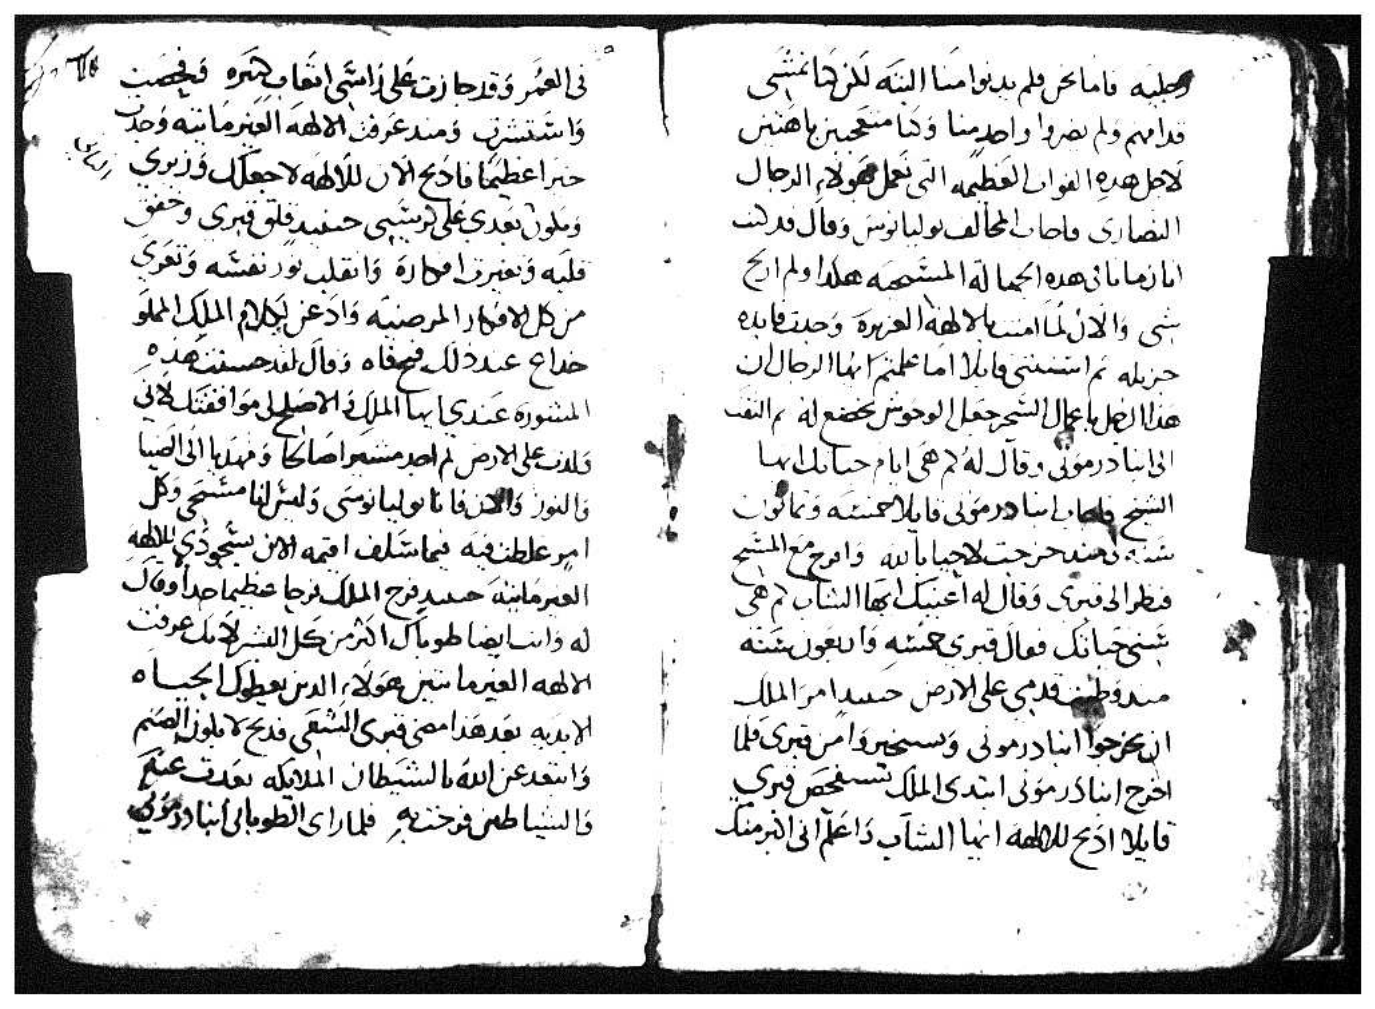 فاما نحن فلم يدنوا منا البته لكن كنا نمشى
قدامهم ولم يضروا واحد منا وكنا متعجبين باهتين
لاجل هذه القوات العظيمه التى تعمل هولاء الرجال
النصارى فاجاب المخالف يوليانوس وقال قد كنت
انا زمانا فى هده الجهاله المسيحيه هكدا ولم اربح
شى والان لما امنت بالالهة العزيزة وجدت فايده
جزيله ثم قايلا اما علمتم ايها الرجال ان
هذا الرجل باعمال السحر جعل الوحوش تخضع له ثم التفت
الى انبا درمونى وقال له كم هى ايام حياتك ايها
الشيخ فاجاب انبا درمونى قايلا خمسه وتمانون
سنه منذ خرجت لاحيا بالله وافرح مع المسيح
فنظر الى قبرى وقال له اعنيك ايها الشاب كم هى
سنى حياتك فقال قبرى خمسه واربعون سنه
مند وطيت قدمى على الارض حينيدا امر الملك
ان يخرجوا انبا درمونى من قبرى فلما
اخرج انبا درمونى ابتدى الملك يستفحص قبرى
قايلا ادبح للالهة ايها الشاب واعلم انى اكبر منك
فى العمر وقد جازت على راسى اتعاب كثيره ففحصت
ومند عرفت الالهة الغير مايته وجدت
خيرا عظيما فادبح الان للالهة لاجعلك وزيرى
وتكون بعدى على كرسيى حينيد قلق قبرى وخفق
قلبه وتغيرت افكارة وانقلب نور نفسه وتعرى
من كل الافكار المرضيه واذعن لكلام الملك المملو
خداع عند ذلك فتح فاه وقال لقد حسنت هذه
المشورة عندى ايها الملك والاصلح لى موافقتك لانى
ولدت على الارض لم اجد مشيرا صالحا ومهديا الى الضيا
والنور والان فانا يوليانوسى ولست انا مسيحى وكل
امر غلطت فيه فيما سلف اقيمه الان بسجودى للالهة
الغير مايته حينيد فرح الملك فرحا عظيما جدا وقال
له وانت ايضا طوباك اكثر من كل البشر لانك عرفت
الالهه الغير مايتين هولاء الدين يعطوك الحياه
الابديه بعد هذا مضى قبرى الشقى فدبح لابلون الصنم
وابتعد عن الله بالشيطان الملايكه بعدت عنه
والشياطين فرحت به فلما راى الطوبانى انبا درمونى